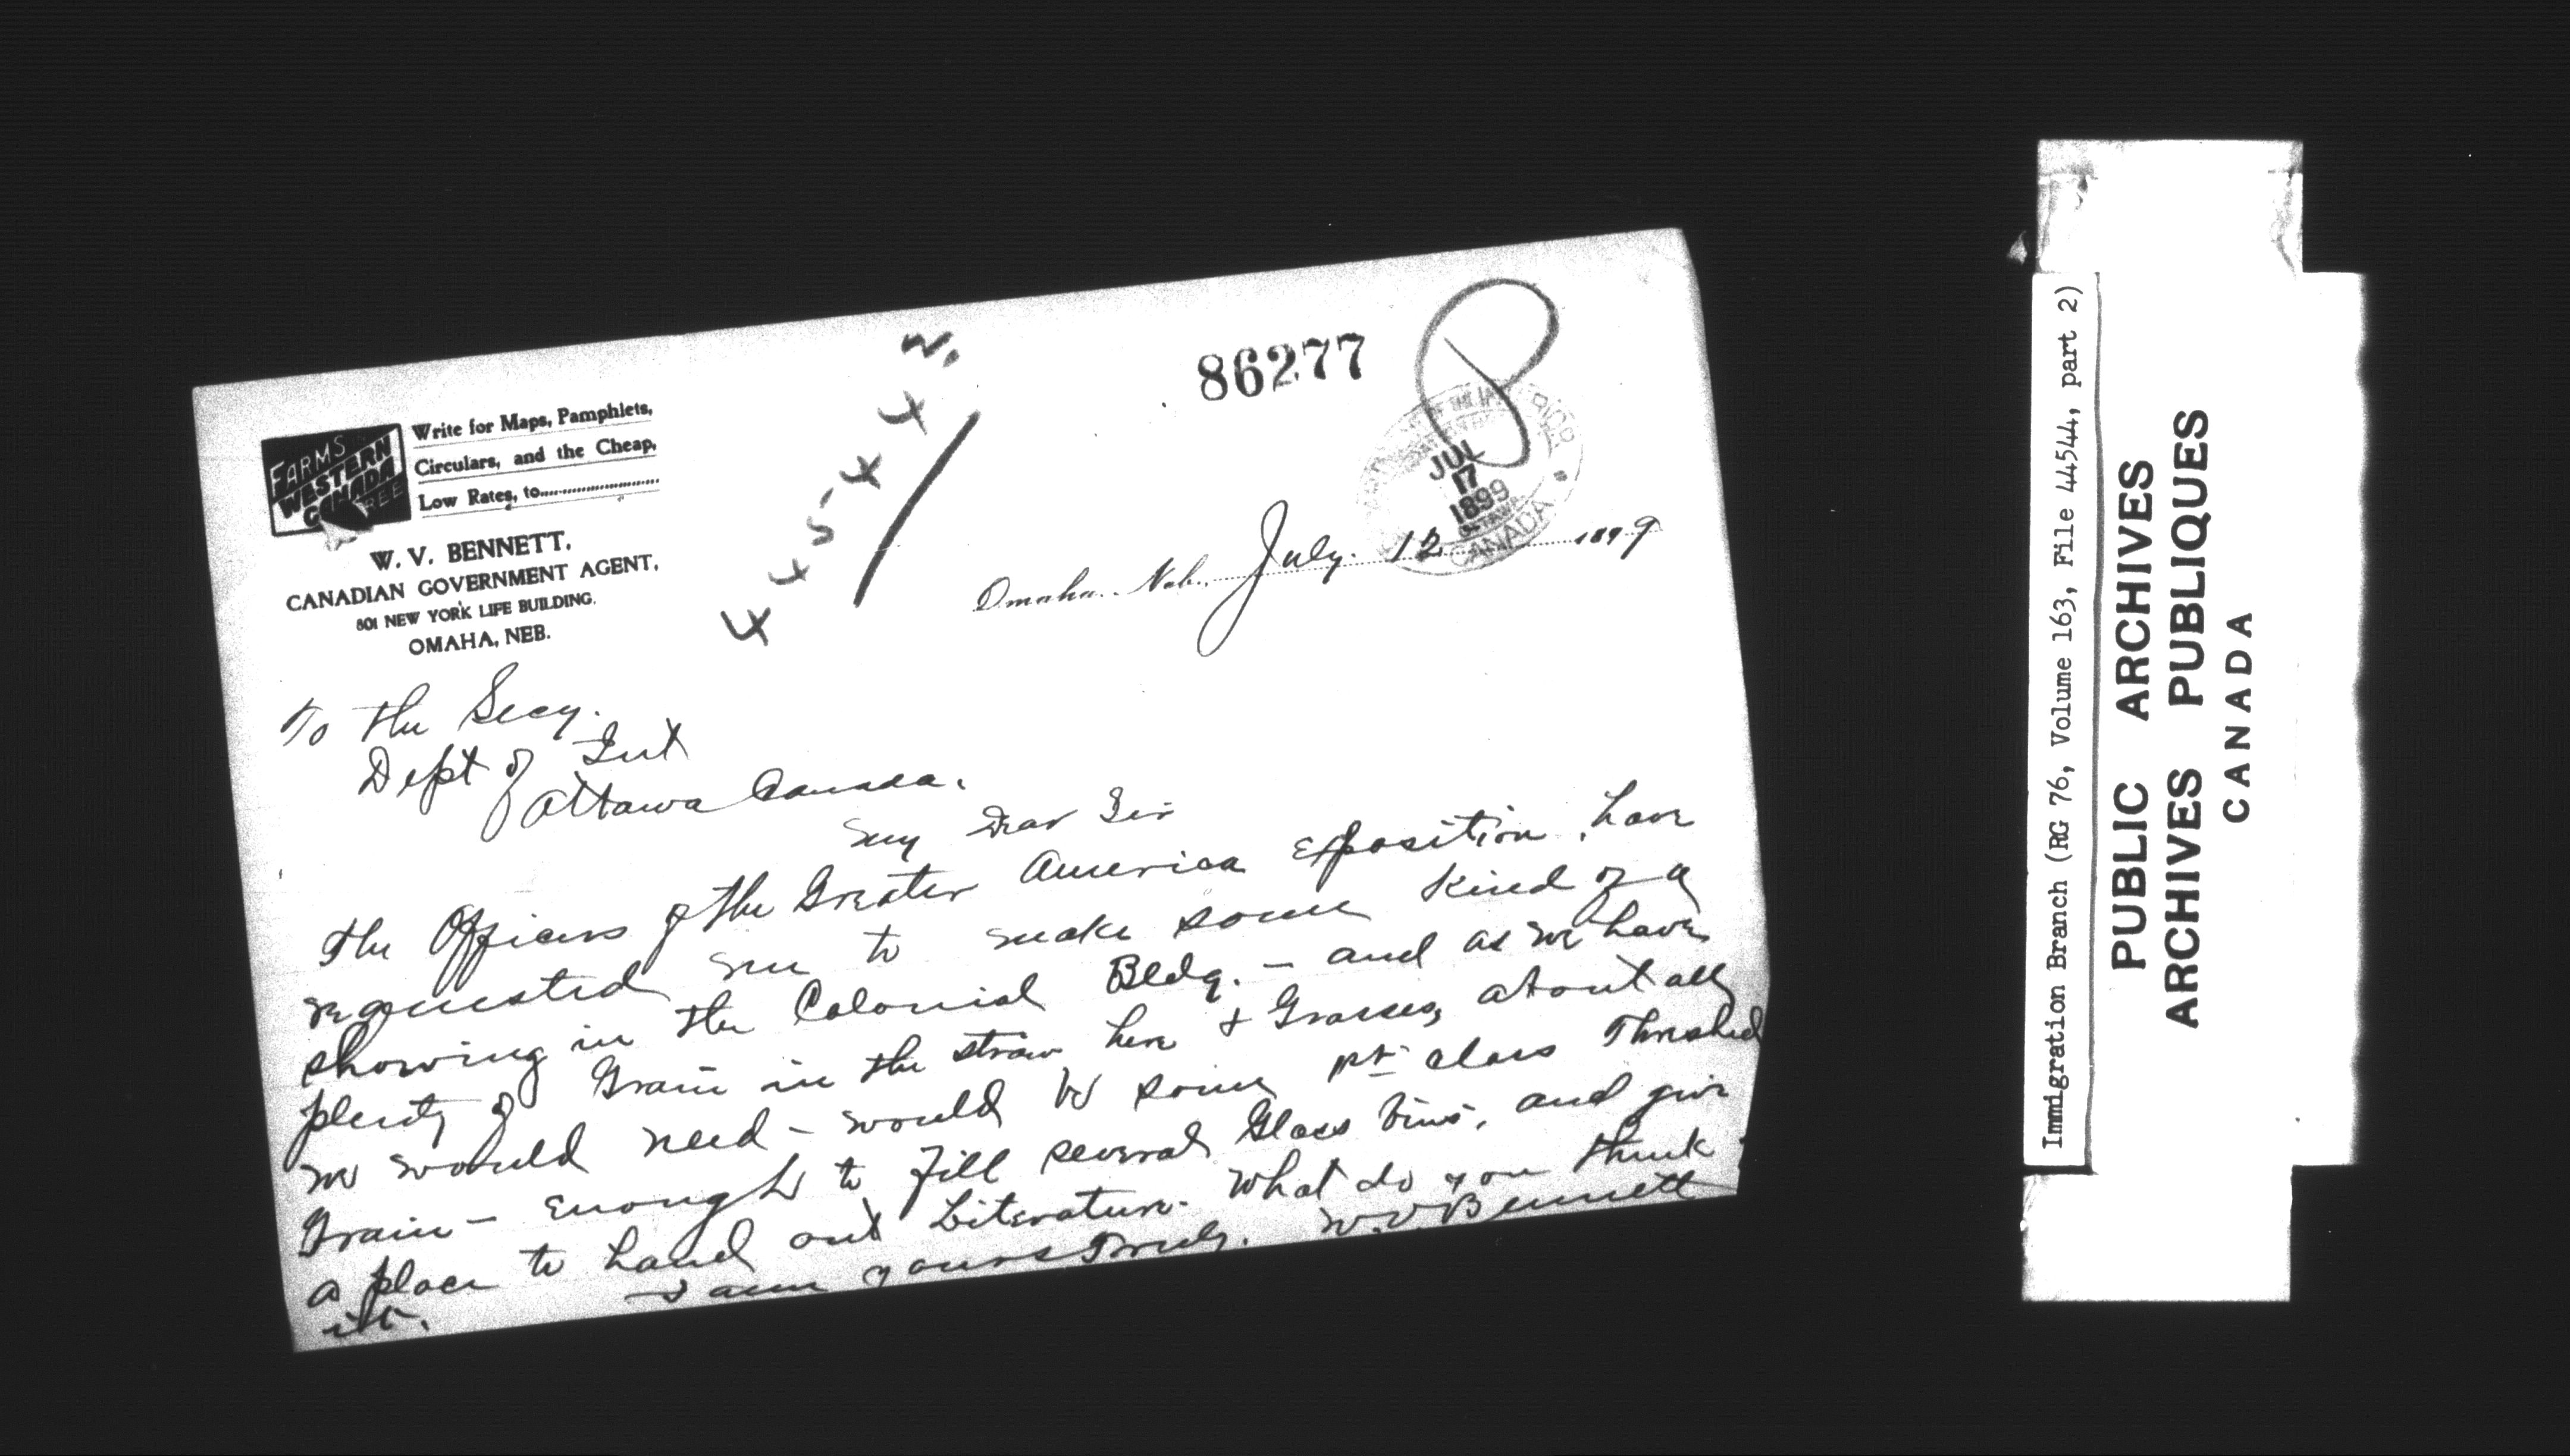 FARMS
WESTERN
CANADA
FREE
Write for Maps, Pamphlets,
Circulars, and the Cheap,
Low Rates, to
W. V. BENNETT,
CANADIAN GOVERNMENT AGENT,
801 NEW YORK LIFE BUILDING.
OMAHA, NEB.
44544
86277
JUL
17
1899
OTTAWA
CANADA
Omaha, Neb., July. 12 1899
To the Secy.
Dept of Int
Ottawa Canada.
My Dear Sir
The Officers of the Greater America Exposition, have
requested me to make some kind of a
showing in the Colonial Bldg. – and as we have
plenty of Grain in the straw here & Grasses, about all
we would need – would be some class Threshed
Grain – Enough to fill several Glass bins, and give
a place to hand out Literature. What do you think
it.
I am yours Truly. W.V. Bennett
Immigration Branch (RG 76, Volume 163, File 44544, part 2)
PUBLIC ARCHIVES
ARCHIVES PUBLIQUES
CANADA